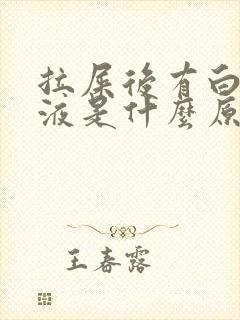 拉屎後有白
液是什麼原
王春露